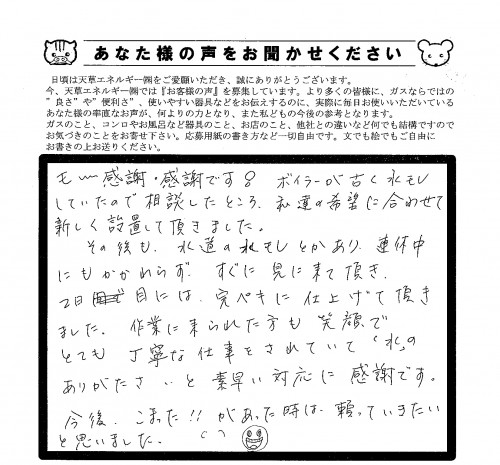 あなた様の声をお聞かせください
日頃は天草エネルギー㈱をご愛願いただき、誠にありがとうございます。
今、天草エネルギー㈱では『お客様の声』を募集しています。より多くの皆様に、ガスならではの
"良さ"や"便利さ"、使いやすい器具などをお伝えするのに、実際に毎日お使いいただいている
あなた様の率直なお声が、何よりの力となり、また私どもの今後の参考となります。
ガスのこと、コンロやお風呂など器具のこと、お店のこと、他社との違いなど何でも結構ですので
お気づきのことをお寄せ下さい。応募用紙の書き方など一切自由です。文でも絵でもご自由に
お書きの上お送りください。
モ〜感謝・感謝です! ボイラーが古く水モレ
していたので相談したところ、私達の希望に合わせて
新しく設置して頂きました。
その後も、水道の水モレとかあり、連休中
にもかかわらず、すぐに見に来て頂き、
2日目には、完ペキに仕上げて頂き
ました。作業に来られた方も笑顔で
とても丁寧な仕事をされていて「水」の
ありがたさ、と素早い対応に感謝です。
今後、こまった!!があった時は、頼っていきたい
と思いました。